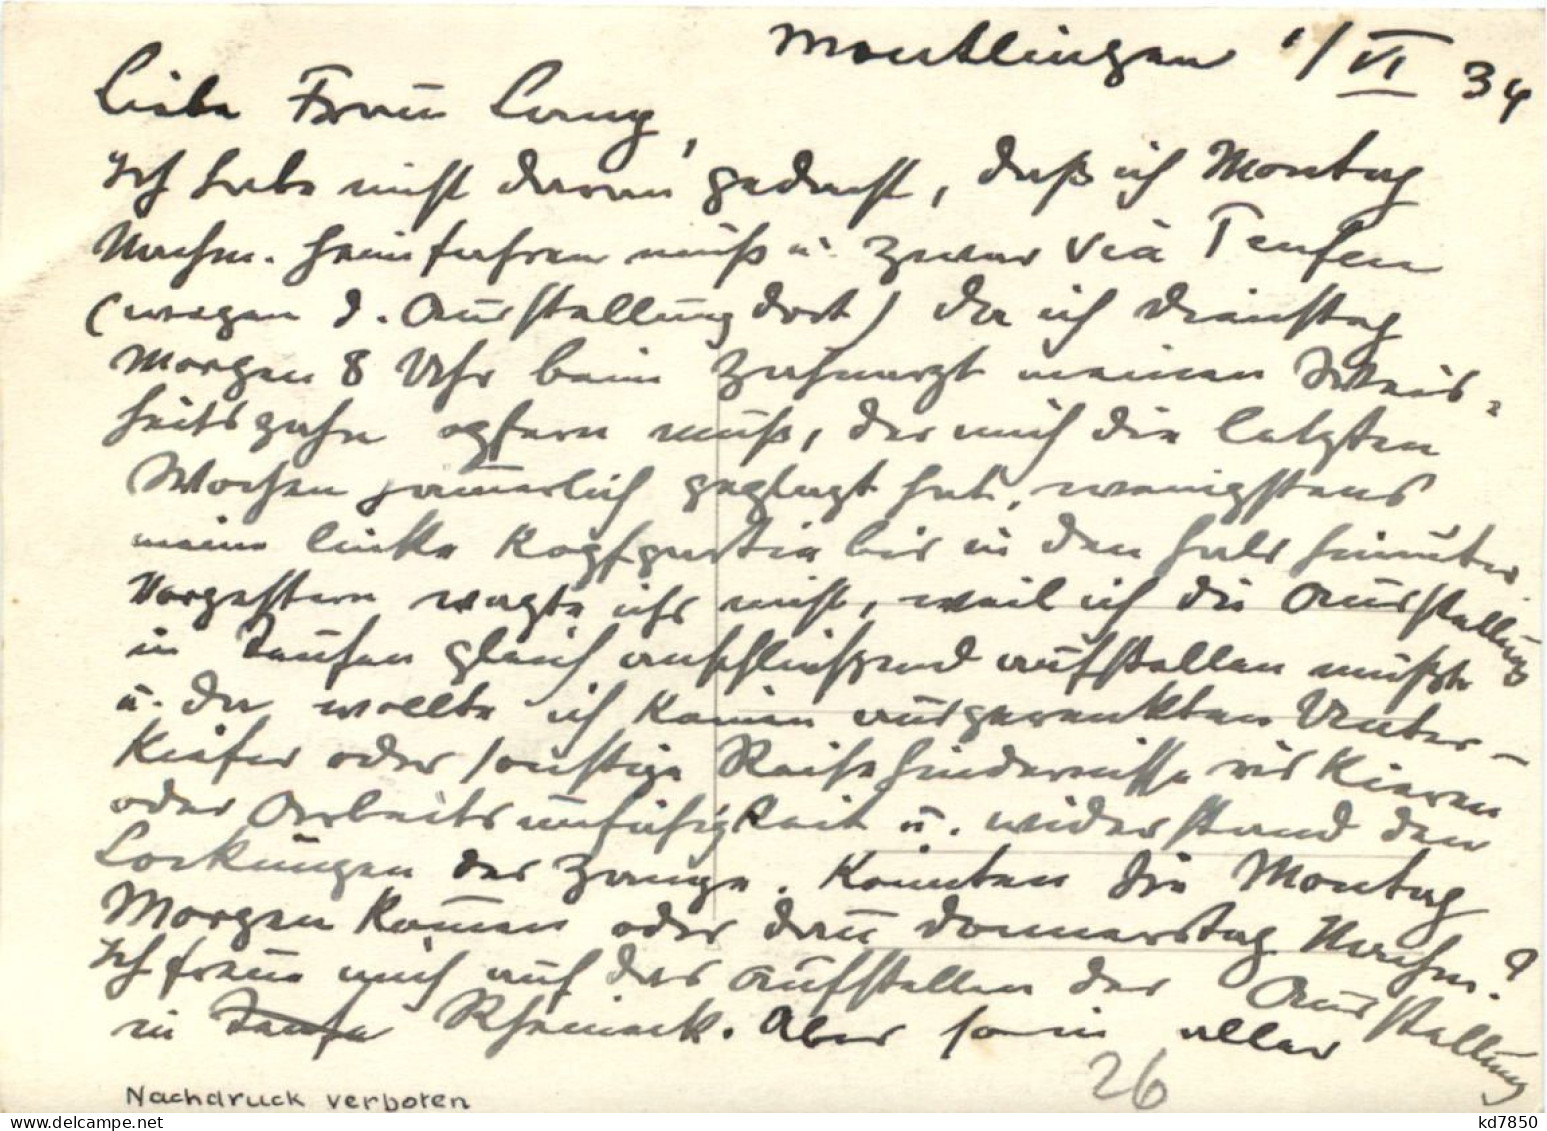 Montlingen 1/VI 34
Liebe Frau Lang,
Ich habe nicht daran gedacht, daß ich Montag
Nachm. heimfahren muß u. zwar via Teufen
(wegen d. Ausstellung dort) da ich Dienstag
Morgen 8 Uhr beim Zahnarzt meinen Weis-
heitszahn opfern muß, der mich die letzten
Wochen jämmerlich geplagt hat, wenigstens
meine linke Kopfpartie bis in den Hals hinunter.
Vorgestern wagte ichs nicht, weil ich die Ausstellung
in Teufen gleich anschließend aufstellen mußte
u. da wollte ich keinen ausgerenkten Unter-
kiefer oder sonstige Reisehindernisse riskieren
oder Arbeitsunfähigkeit u. widerstand den
Lockungen der Zange. Könnten Sie Montag
Morgen kommen oder dann Donnerstag Nachm.?
Ich freue mich auf das Aufstellen der Ausstellung
in Rheineck. Aber so in aller
26
Nachdruck verboten
delcampe.net
kd7850